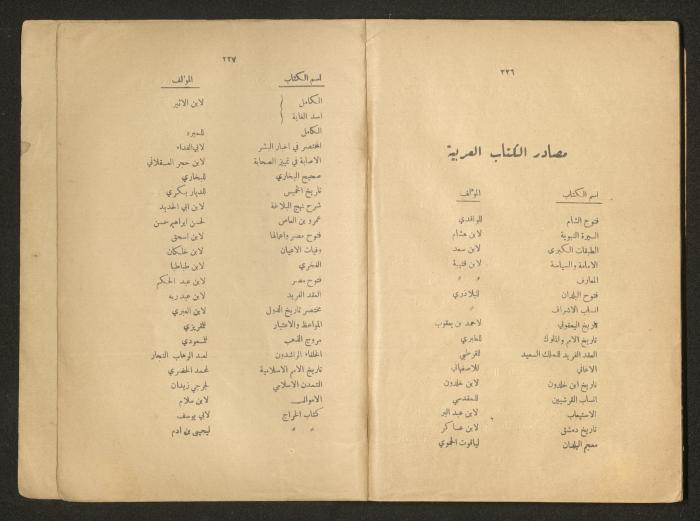 ٢٢٦
مصادر الكتاب العربية
اسم الكتاب المؤلف
فتوح الشام للواقدي
السيرة النبوية لابن هشام
الطبقات الكبرى لابن سعد
الامامة والسياسة لابن قتيبة
المعارف » »
فتوح البلدان للبلاذري
انساب الاشراف »
تاريخ اليعقوبي لاحمد بن يعقوب
تاريخ الامم والملوك للطبري
العقد الفريد للملك السعيد للقرشي
الاغاني للاصفهاني
تاريخ ابن خلدون لابن خلدون
انساب القرشيين للمقدسي
الاستيعاب لابن عبد البر
تاريخ دمشق لابن عساكر
معجم البلدان لياقوت الحموي
٢٢٧
اسم الكتاب المؤلف
الكامل لابن الاثير
اسد الغابة
الكامل للمبرد
المختصر في اخبار البشر لابي الفداء
الاصابة في تمييز الصحابة لابن حجر العسقلاني
صحيح البخاري للبخاري
تاريخ الخميس للديار بكري
شرح نهج البلاغة لابن ابي الحديد
عمرو بن العاص لحسن ابراهيم حسن
فتوح مصر واعمالها لابن اسحق
وفيات الاعيان لابن خلكان
الفخري لابن طباطبا
فتوح مصر لابن عبد الحكم
العقد الفريد لابن عبد ربه
مختصر تاريخ الدول لابن العبري
المواعظ والاعتبار للمقريزي
مروج الذهب للمسعودي
الخلفاء الراشدون لعبد الوهاب النجار
تاريخ الامم الاسلامية لمحمد الخضري
التمدن الاسلامي لجرجي زيدان
الاموال لابن سلام
كتاب الخراج لابي يوسف
» » ليحيى بن ادم